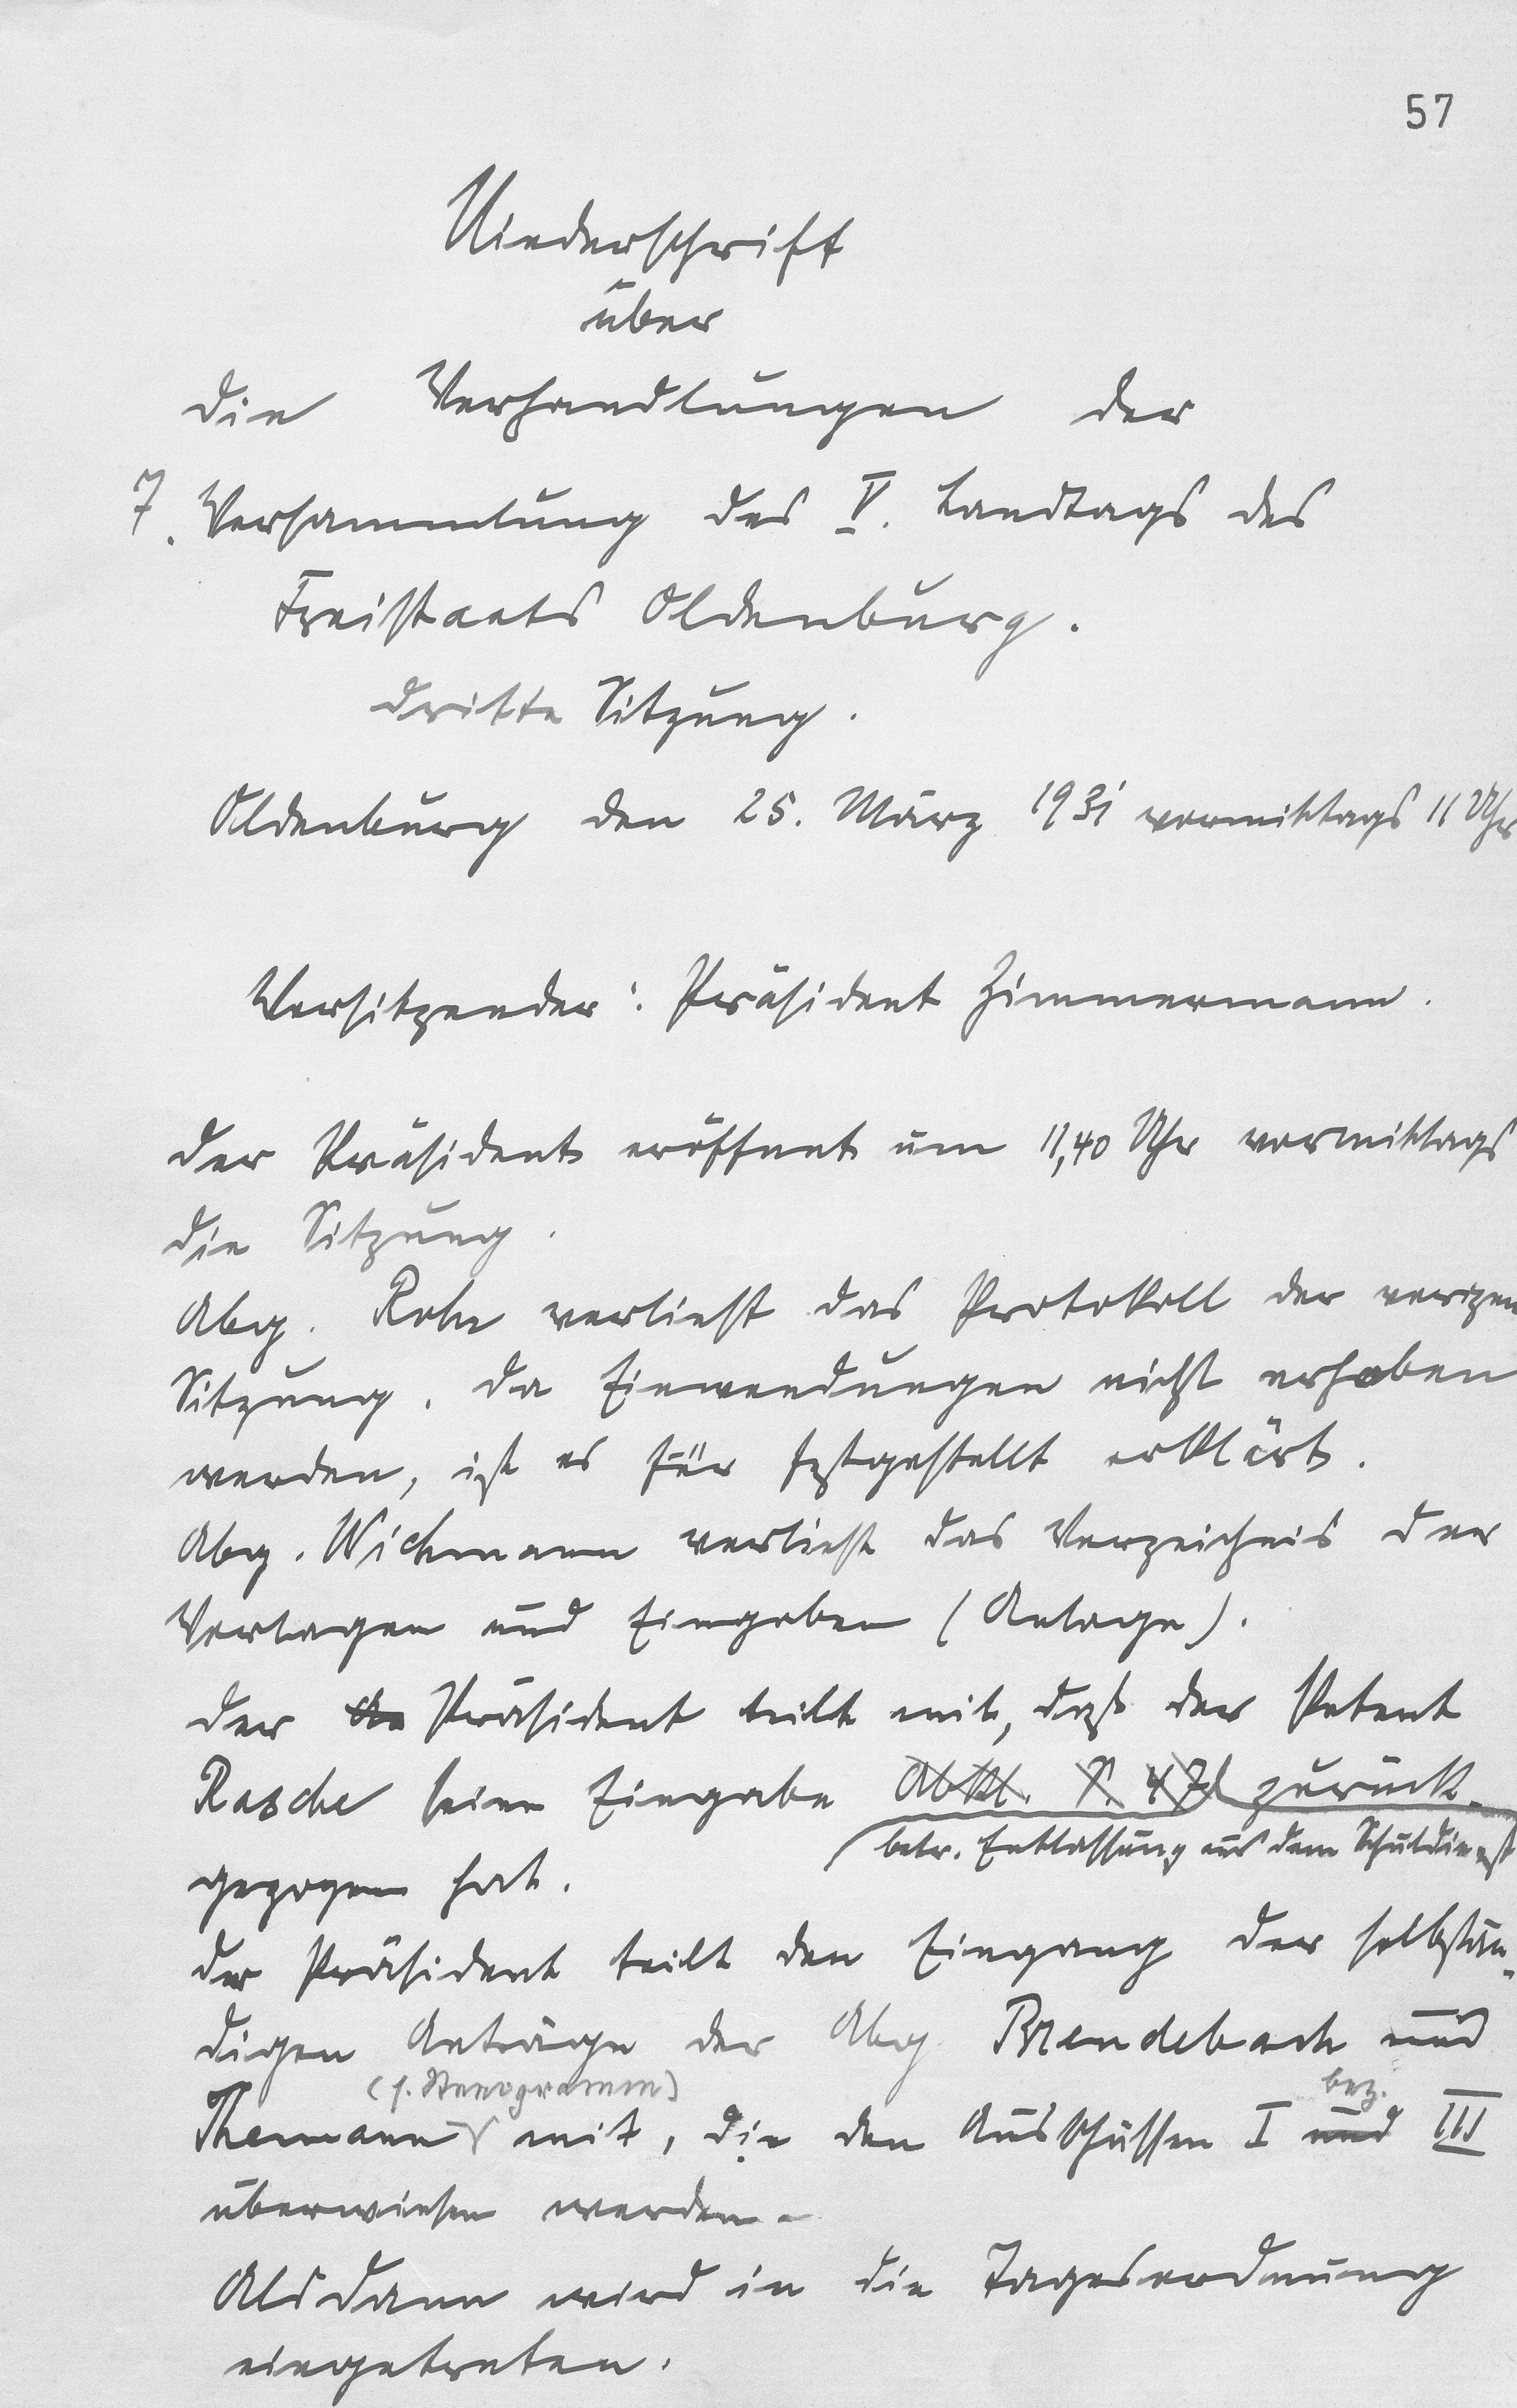 57
Niederschrift
über
die Verhandlungen der
7. Versammlung des V. Landtags des
Freistaats Oldenburg.
dritte Sitzung.
Oldenburg den 25. März 1931 vormittags 11 Uhr
Vorsitzender: Präsident Zimmermann.
Der Präsident eröffnet um 11,40 Uhr vormittags
die Sitzung.
Abg. Rohr verliest das Protokoll der vorigen
Sitzung. Da Einwendungen nicht erhoben
werden, ist es für festgestellt erklärt.
Abg. Wichmann verliest das Verzeichnis der
Vorlagen und Eingaben (Anlage).
Der Präsident teilt mit, daß der Petent
Rasche seine Eingabe Abtl. S. 47 zurück-
(betr. Entlassung aus dem Schuldienst
gezogen hat.
Der Präsident teilt den Eingang der selbstän-
digen Anträge der Abg. Brendebach und
(s. Stenogramm) bez.
Themann mit, die den Ausschüssen I und III
überwiesen werden.
Alsdann wird in die Tagesordnung
eingetreten.